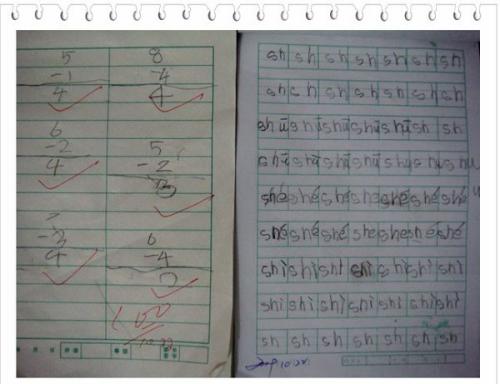 5 8
-1 -4
4 4
6
-2 5
4 -2
3
7
-3 6
4 -4
2
100
10.22
sh sh sh sh sh sh sh
sh sh sh sh sh sh sh
shū shū shū shū shū sh sh
shū shū shū shū shu shu shu
shé shé shé she shé shé shé
shé shé shé she she shé shé
shì shì shì shì shì shì shì
shì shì shì shì shì shì shì
sh sh sh sh sh sh sh
10.22.